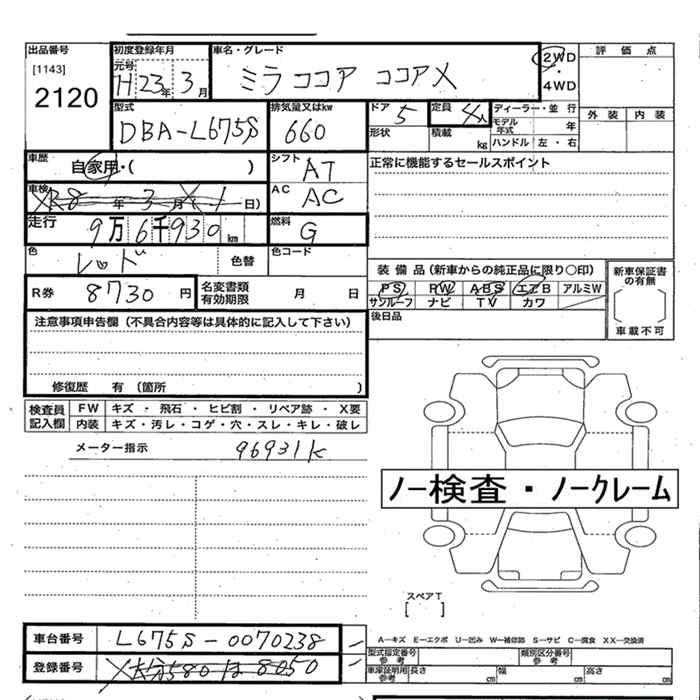 出品番号 初度登録年月 車名・グレード 評価点
[1143] 元号 2WD
2120 H23年 3月 ミラココア ココアX ・4WD
型式 排気量又はkw ドア 定員 ディーラー・並行 外装 内装
DBA-L675S 660 5 4人 モデル年式 年
形状 積載 kg ハンドル 左・右
車歴 シフト 正常に機能するセールスポイント
自家用・( ) AT
車検 AC
R8年3月(1日) AC
走行 燃料
9万6千930km G
色 色替 色コード
レッド
装備品(新車からの純正品に限り○印) 新車保証書の有無
R券 8730円 名変書類有効期限 月 日 PS PW ABS エアB アルミW
サンルーフ ナビ TV カワ
後日品 車載不可
注意事項申告欄(不具合内容等は具体的に記入して下さい)
修復歴 有(箇所 )
検査員記入欄 FW キズ・飛石・ヒビ割・リペア跡・X要
内装 キズ・汚レ・コゲ・穴・スレ・キレ・破レ
メーター指示 96931k
ノー検査・ノークレーム
スペアT
[ ]
A-キズ E-エクボ U-凹み W-補修跡 S-サビ C-腐食 XX-交換済
車台番号 L675S-0070238 型式指定番号 参考 類別区分番号 参考
登録番号 大分580 は 8050 車庫証明用 参考 長さ cm 幅 cm 高さ cm